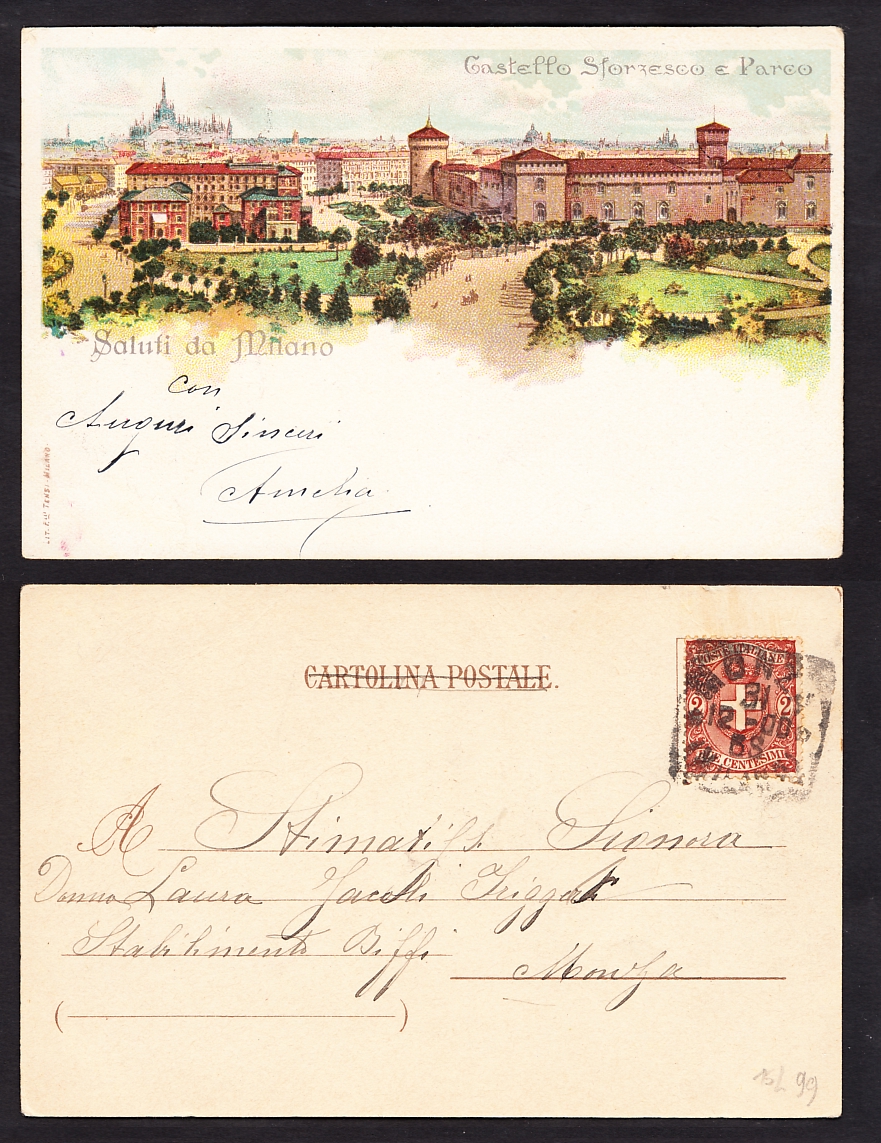 Castello Sforzesco e Parco
Saluti da Milano
con
Auguri Sinceri
Amelia
LIT. F.LLI TENSI - MILANO
CARTOLINA POSTALE.
POSTE ITALIANE
2 2
DUE CENTESIMI
31
12
A Stimatifs. Signora
Donna Laura
Stabilimento Biffi
Monza
(          )
15/ 99